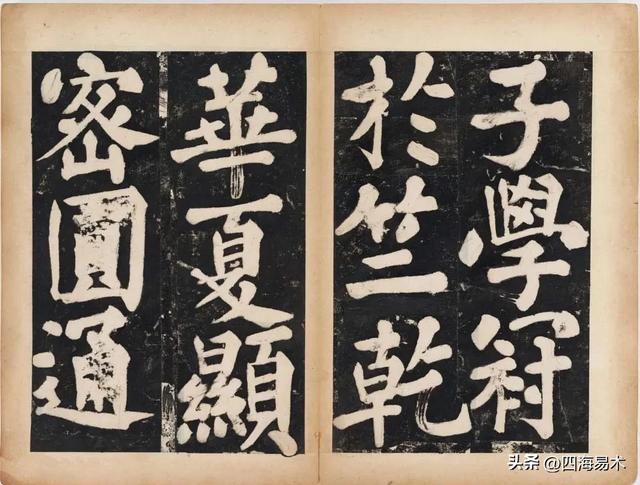 子學
於竺乾
華夏顯
密圓通
头条 @四海易木